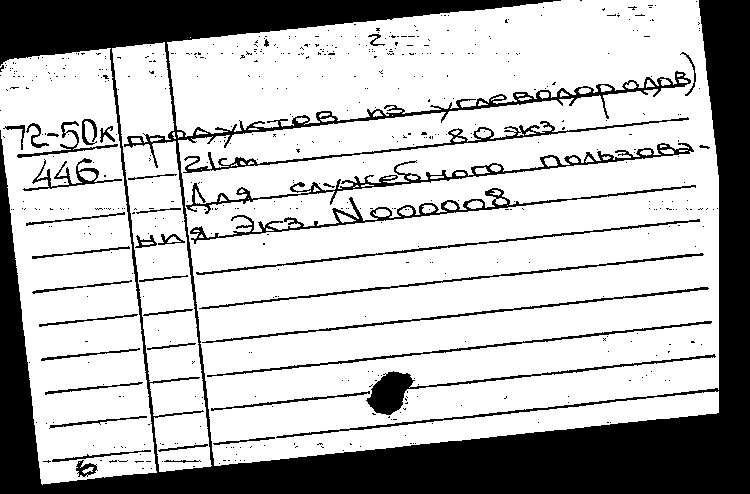 2.
72-50к продуктов из углеводородов)
446 21cm. 80 экз.
Для служебного пользова-
ния. Экз. N000008.
6